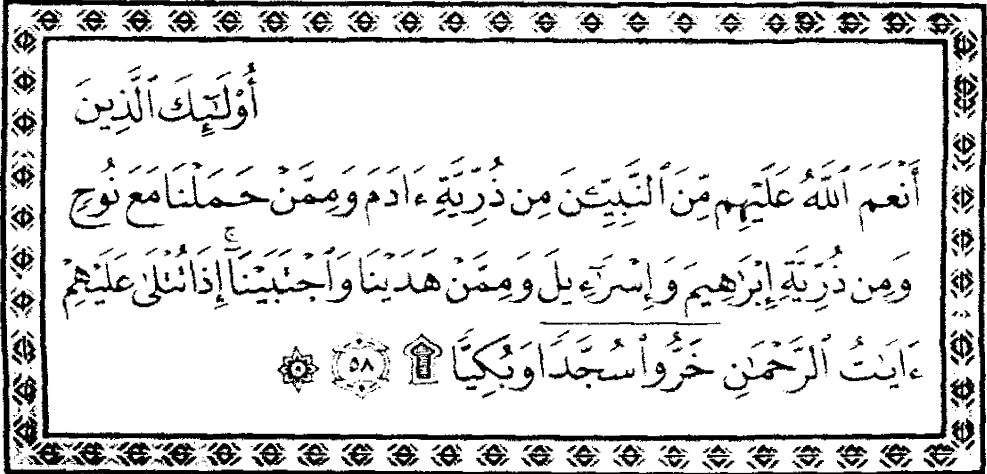 أُوْلَٰٓئِكَ ٱلَّذِينَ
أَنْعَمَ ٱللَّهُ عَلَيْهِم مِّنَ ٱلنَّبِيِّـۧنَ مِن ذُرِّيَّةِ ءَادَمَ وَمِمَّنْ حَمَلْنَا مَعَ نُوحٍ
وَمِن ذُرِّيَّةِ إِبْرَٰهِيمَ وَإِسْرَٰٓءِيلَ وَمِمَّنْ هَدَيْنَا وَٱجْتَبَيْنَآ ۚ إِذَا تُتْلَىٰ عَلَيْهِمْ
ءَايَٰتُ ٱلرَّحْمَٰنِ خَرُّوا۟ سُجَّدًا وَبُكِيًّا ۩ ٥٨